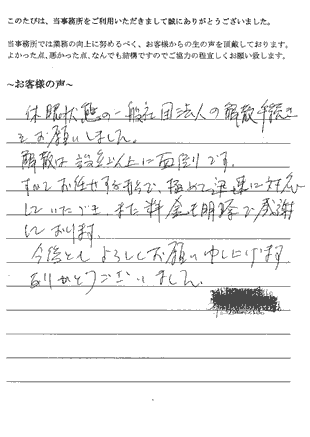 このたびは、当事務所をご利用いただきまして誠にありがとうございました。
当事務所では業務の向上に努めるべく、お客様からの生の声を頂戴しております。
よかった点、悪かった点、なんでも結構ですのでご協力の程宜しくお願い致します。
~お客様の声~
休眠状態の一般社団法人の解散手続き
をお願いしました。
解散は設立以上に面倒です。
すべてお任せする形で、極めて迅速に対応
していただき、また料金も明瞭で感謝
しております。
今後ともよろしくお願い申し上げます
ありがとうございました。